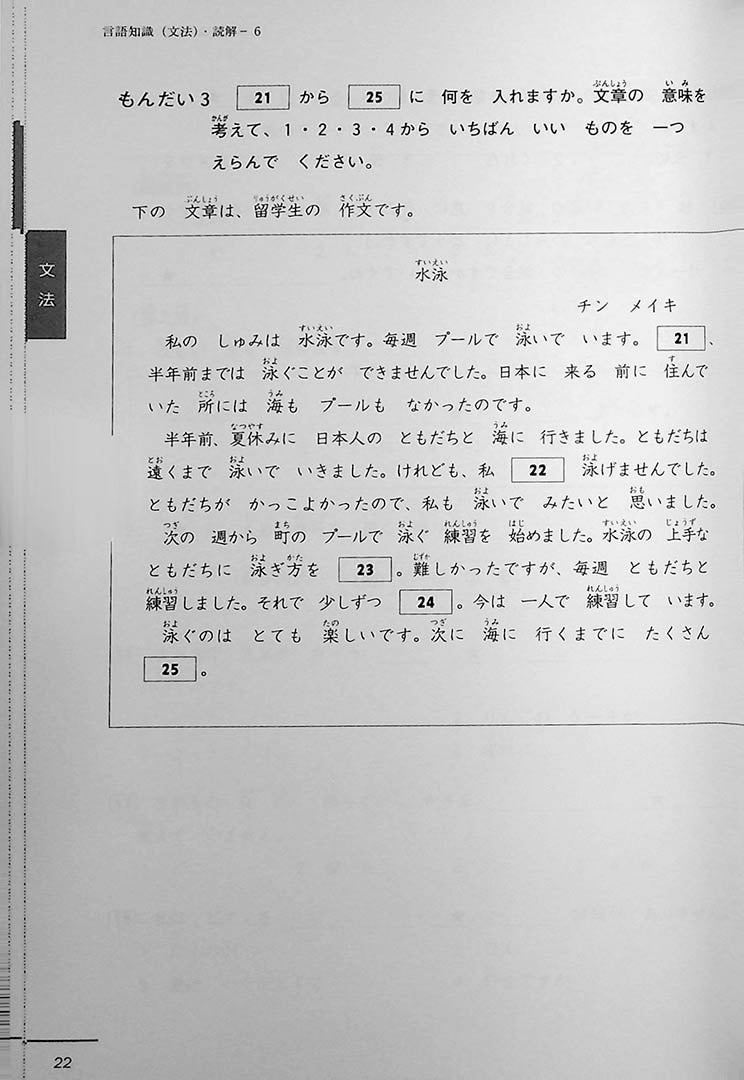 言語知識（文法）・読解－6
もんだい3 21 から 25 に 何を 入れますか。文章の 意味を
考えて、1・2・3・4から いちばん いい ものを 一つ
えらんで ください。
下の 文章は、留学生の 作文です。
文法
水泳
チン メイキ
私の しゅみは 水泳です。毎週 プールで 泳いで います。 21 、
半年前までは 泳ぐことが できませんでした。日本に 来る 前に 住んで
いた 所には 海も プールも なかったのです。
半年前、夏休みに 日本人の ともだちと 海に 行きました。ともだちは
遠くまで 泳いで いきました。けれども、私 22 泳げませんでした。
ともだちが かっこよかったので、私も 泳いで みたいと 思いました。
次の 週から 町の プールで 泳ぐ 練習を 始めました。水泳の 上手な
ともだちに 泳ぎ方を 23 。難しかったですが、毎週 ともだちと
練習しました。それで 少しずつ 24 。今は 一人で 練習して います。
泳ぐのは とても 楽しいです。次に 海に 行くまでに たくさん
25 。
22